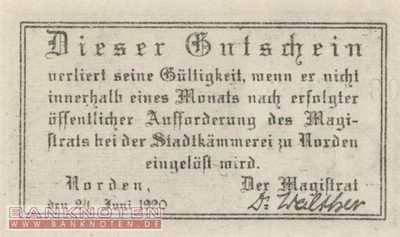 Dieser Gutschein
verliert seine Gültigkeit, wenn er nicht
innerhalb eines Monats nach erfolgter
öffentlicher Aufforderung des Magi-
strats bei der Stadtkämmerei zu Norden
eingelöst wird.
Norden, Der Magistrat
den 24. Juni 1920 Dr. Walther
BANKNOTEN
WWW.BANKNOTEN.DE